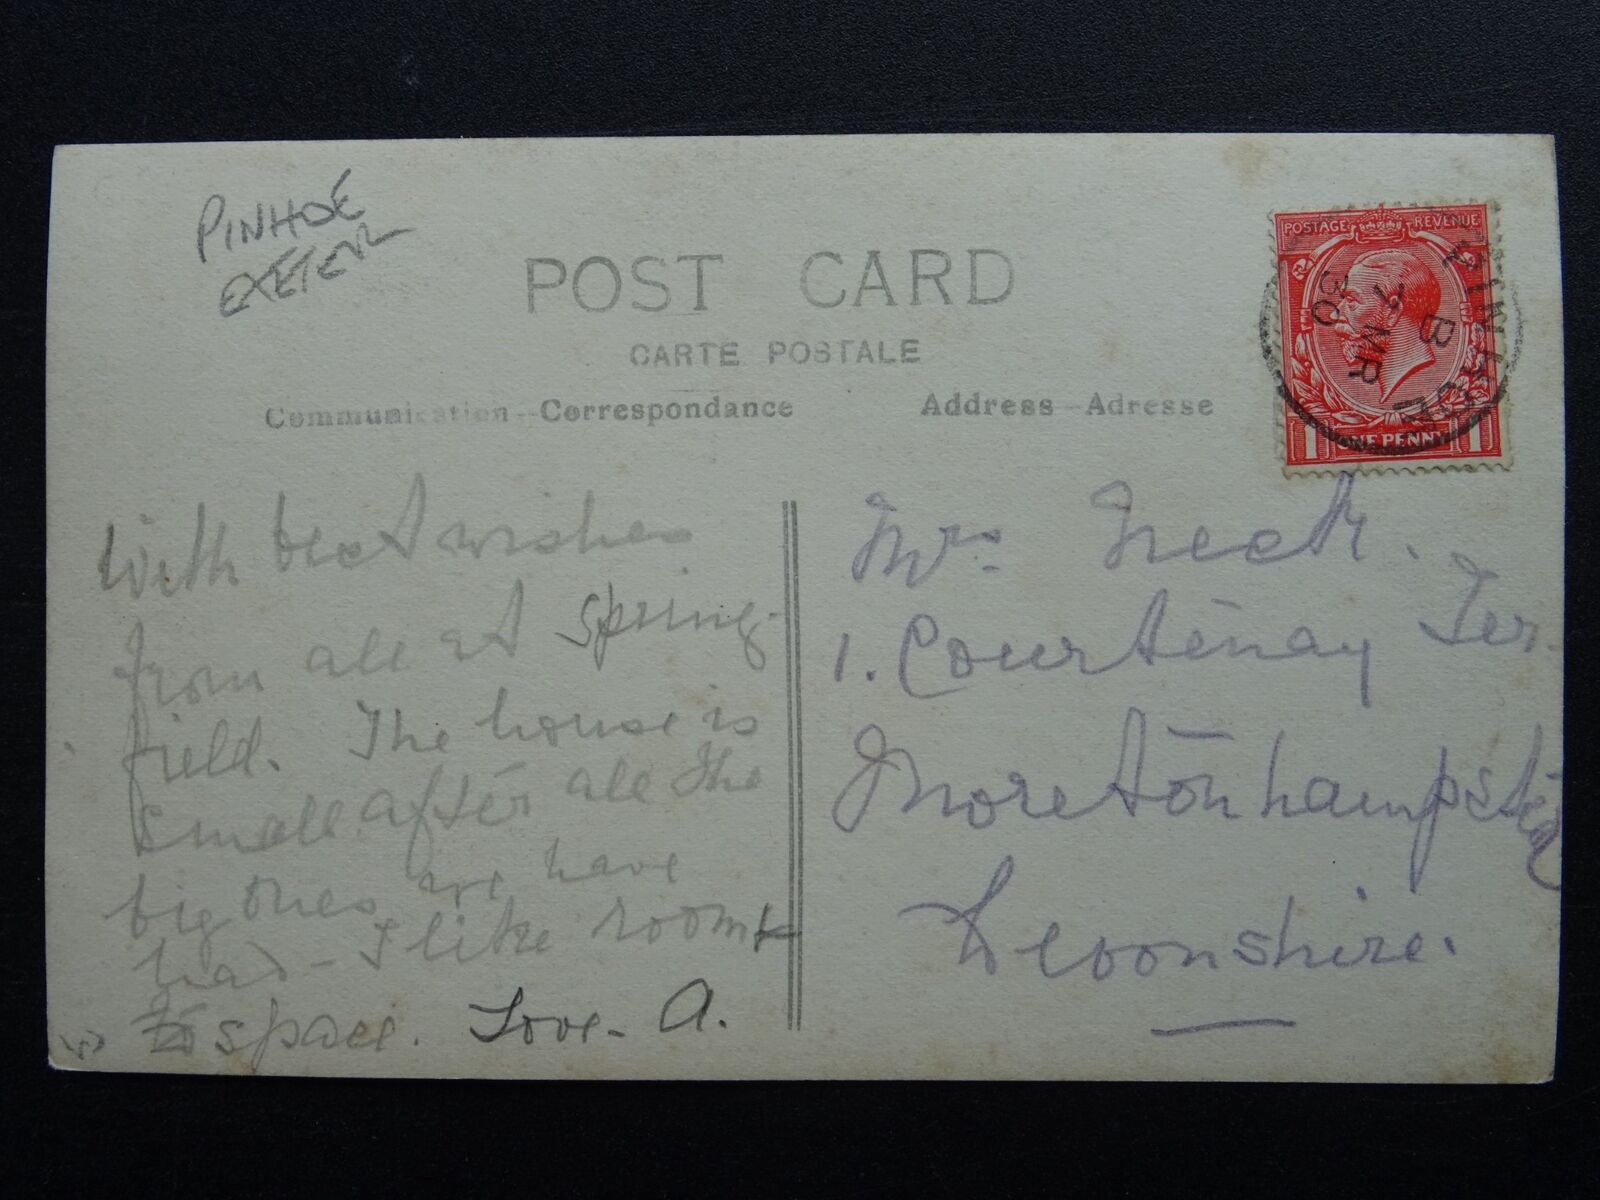 PINHOE
EXETER
POST CARD
CARTE POSTALE
Communication--Correspondance
Address--Adresse
POSTAGE REVENUE
1 ONE PENNY 1
PINHOE
B
7 MR
30
With best wishes
from all at Spring-
field. The house is
small after all the
big ones we have
had - I like room &
space. Love - A.
Mrs Neck.
1. Courtenay Ter.
Moretonhampstead
Devonshire.